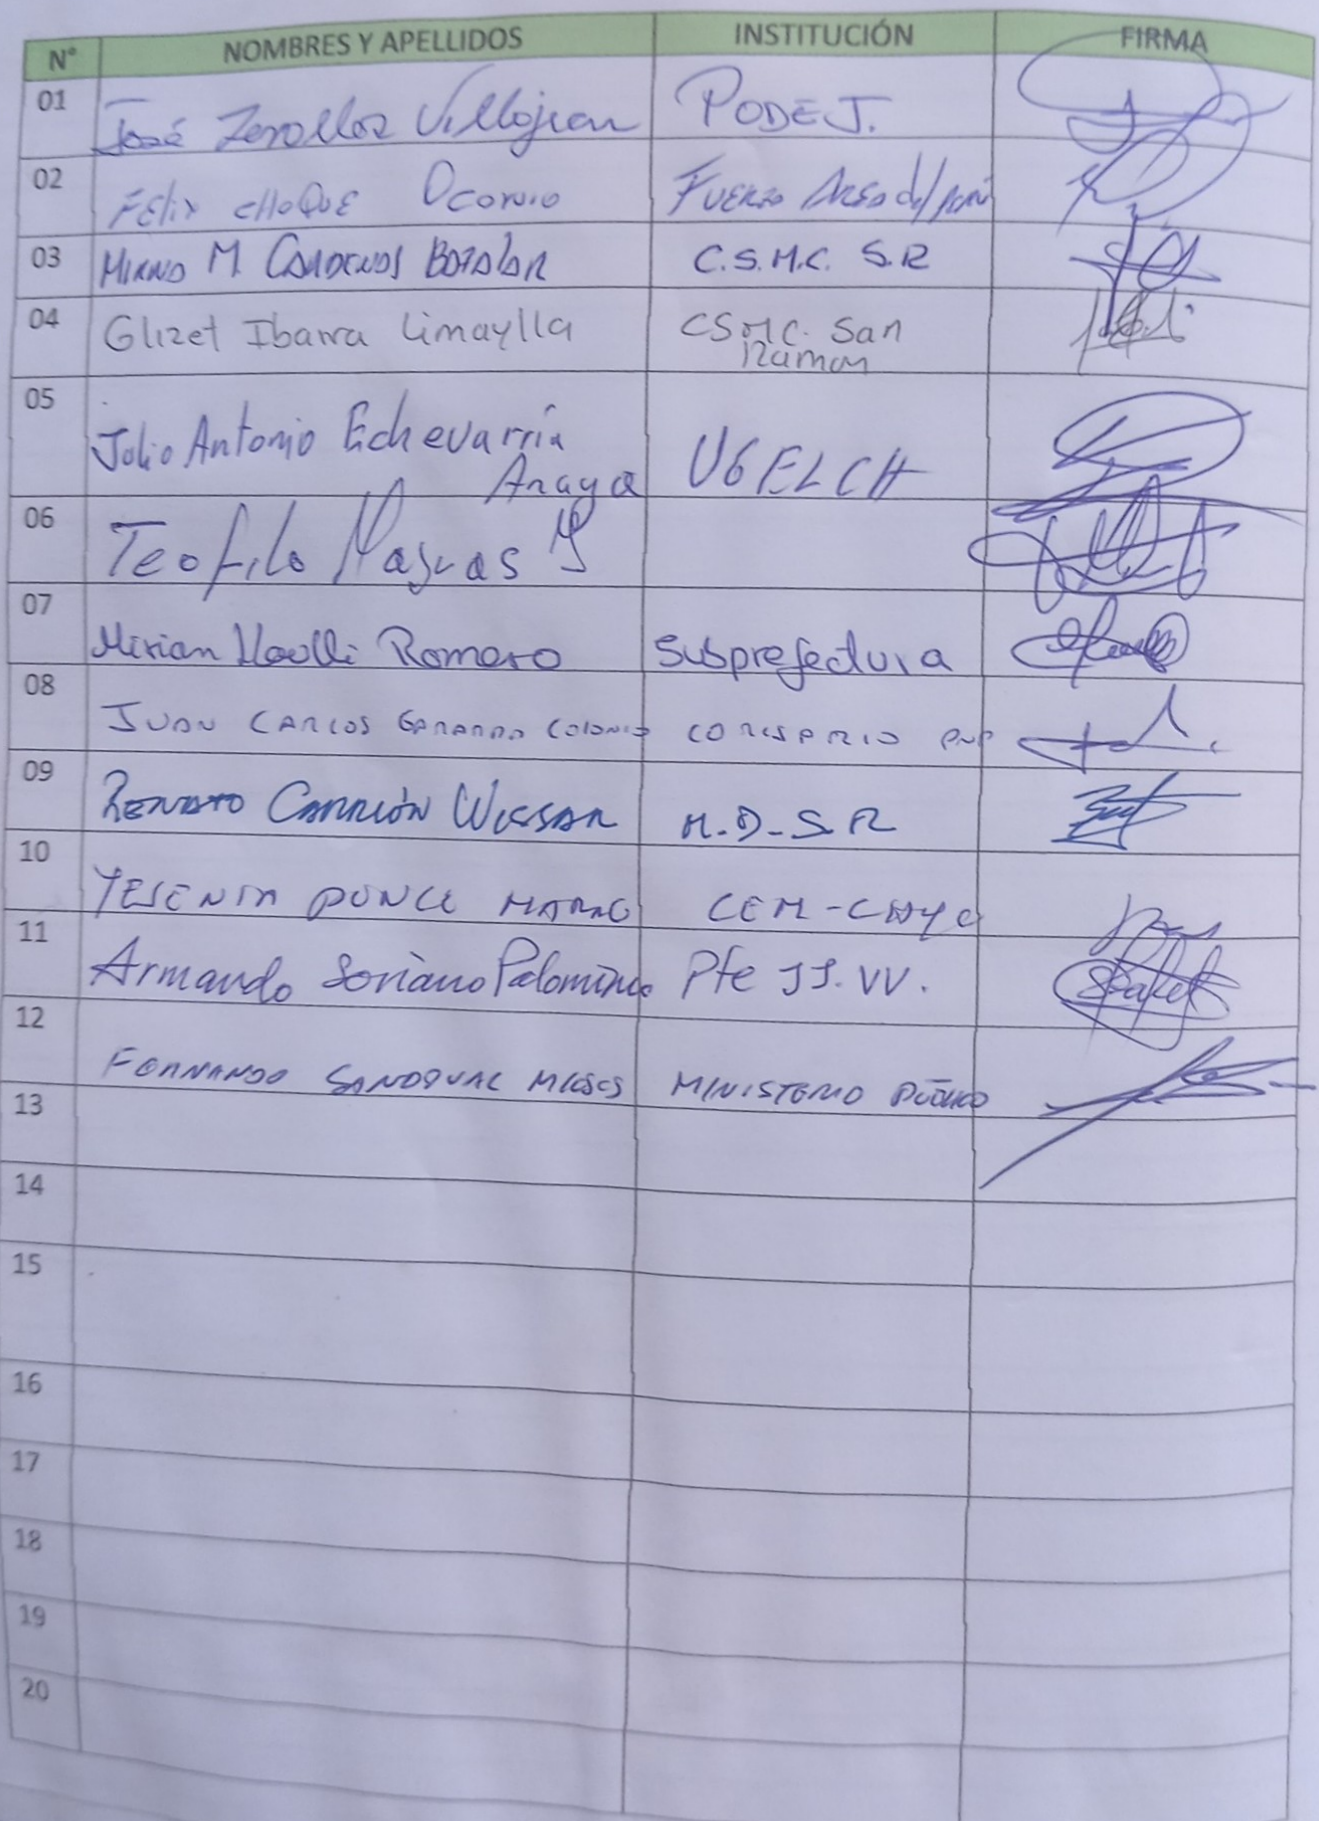 N° NOMBRES Y APELLIDOS INSTITUCIÓN FIRMA
01 José Zevallos PODEJ.
02 FÉlix CHOQUE Ocorio FUERZA AREA del PERÚ
03 M. CARDENAS C.S.M.C. S.R
04 Glizet Ibarra Limaylla CSMC. San
Ramon
05 Julio Antonio Echevarría
Anaya UGELCH
06 Teofilo
07 Mirian Romero Subprefectura
08 JUAN CARLOS COMISARIO PNP
09 RENATO CARRIÓN M.D-S R
10 YESENIA PONCE CEM-CHYO
11 Armando Soriano Palomino Pte JJ.VV.
12 FERNANDO SANDOVAL MIESES MINISTERIO PÚBLICO
13
14
15
16
17
18
19
20